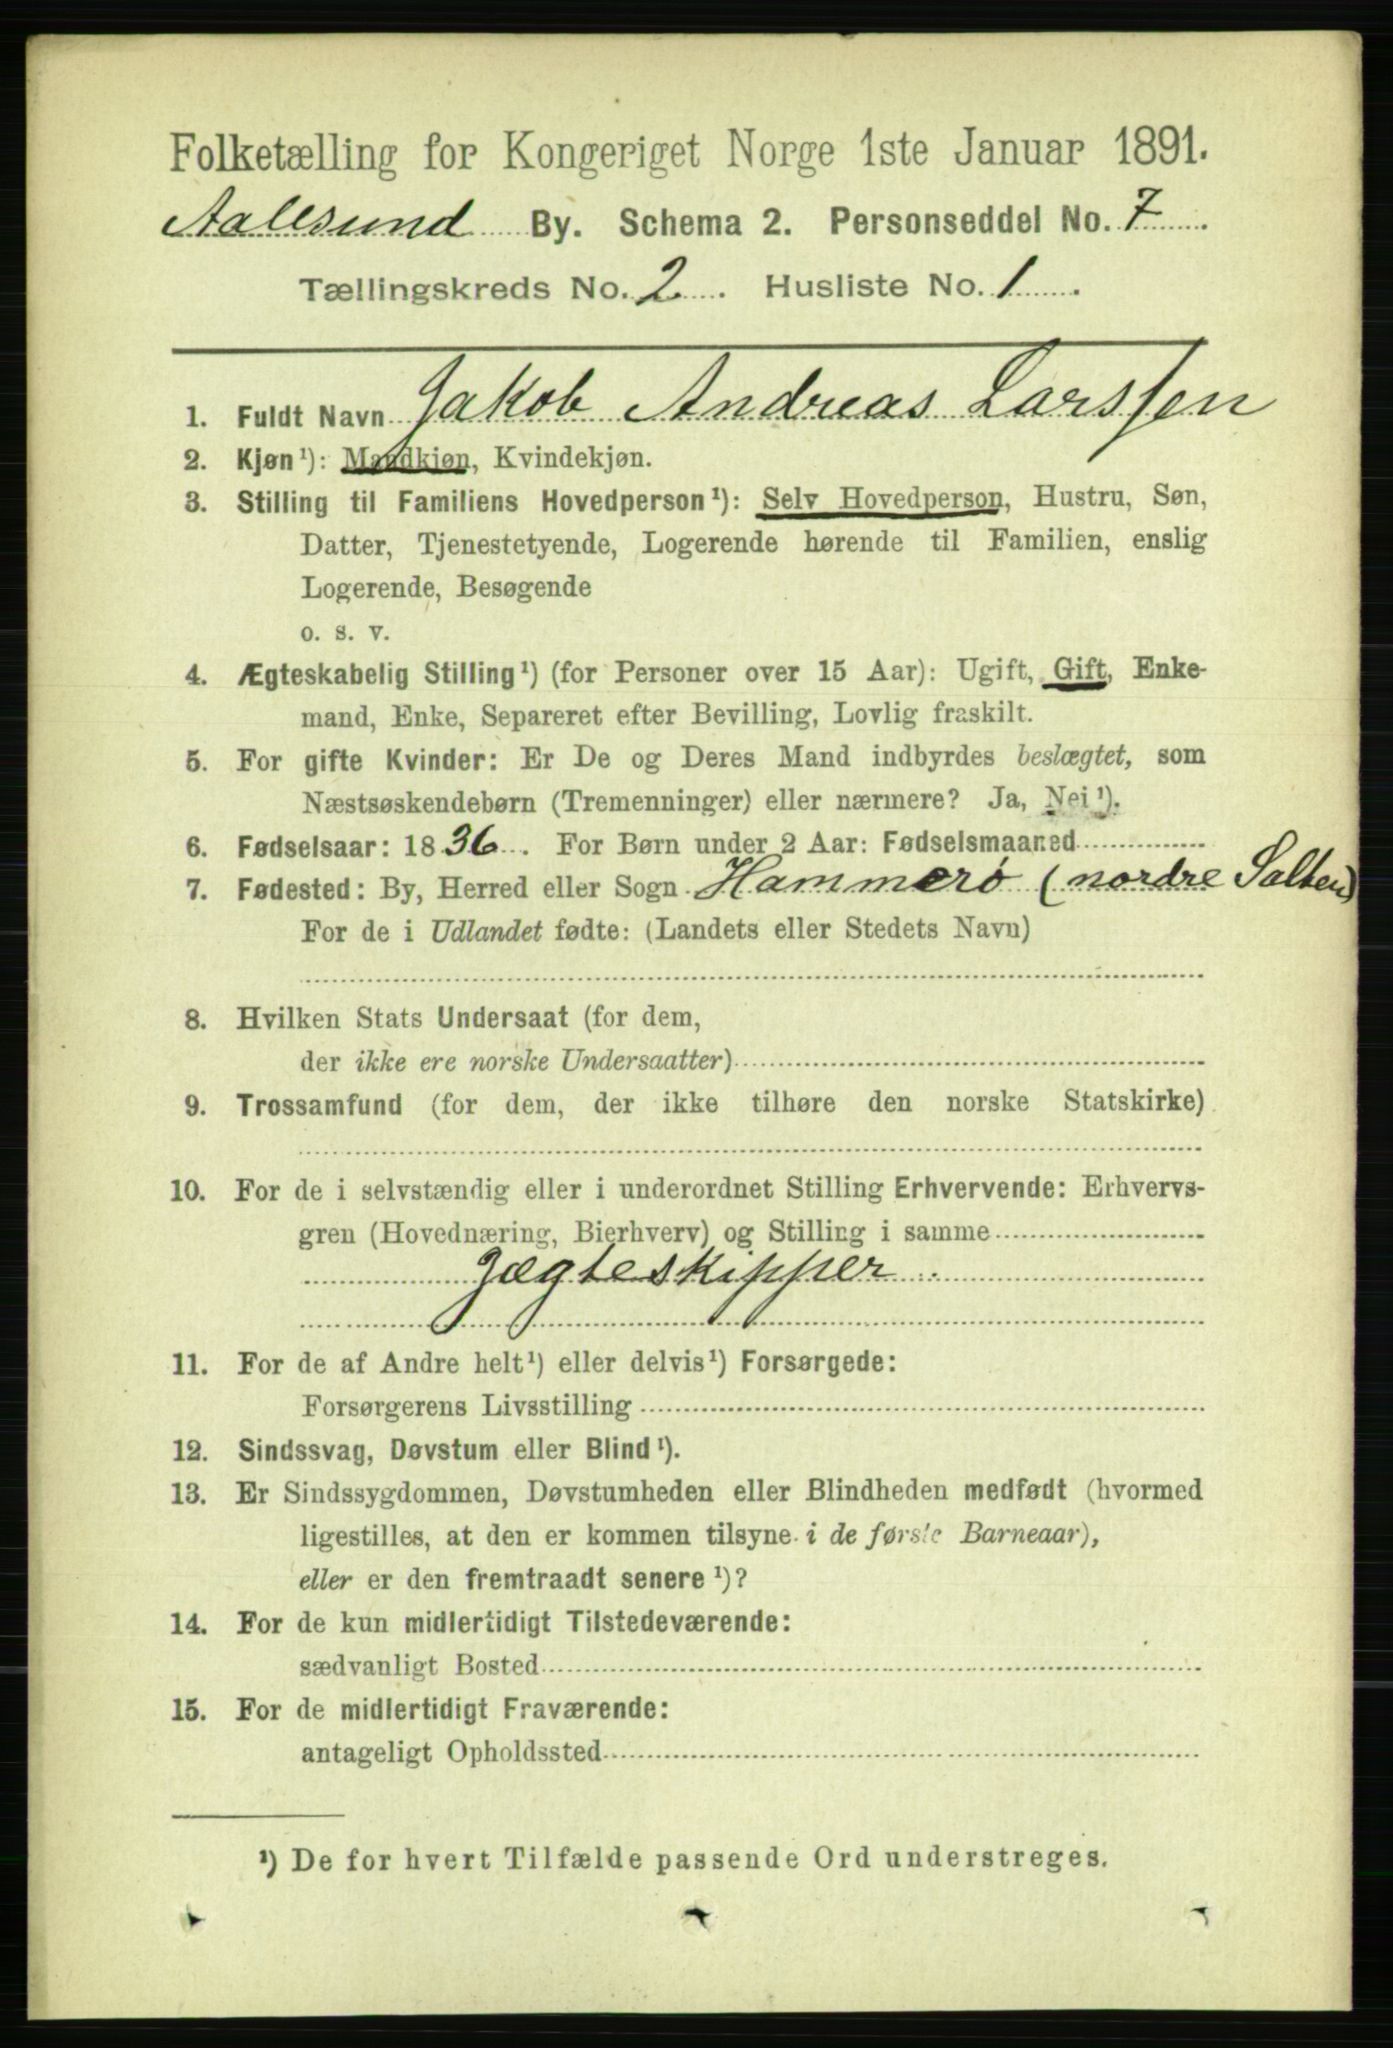 Folketælling for Kongeriget Norge 1ste Januar 1891.
Aalesund By. Schema 2. Personseddel No. 7
Tællingskreds No. 2. Husliste No. 1.
1. Fuldt Navn Jakob Andreas Larssen
2. Kjøn¹): Mandkjøn, Kvindekjøn.
3. Stilling til Familiens Hovedperson¹): Selv Hovedperson, Hustru, Søn,
Datter, Tjenestetyende, Logerende hørende til Familien, enslig
Logerende, Besøgende
o. s. v.
4. Ægteskabelig Stilling¹) (for Personer over 15 Aar): Ugift, Gift, Enke-
mand, Enke, Separeret efter Bevilling, Lovlig fraskilt.
5. For gifte Kvinder: Er De og Deres Mand indbyrdes beslægtet, som
Næstsøskendebørn (Tremenninger) eller nærmere? Ja, Nei¹).
6. Fødselsaar: 1836. For Børn under 2 Aar: Fødselsmaaned
7. Fødested: By, Herred eller Sogn Hammerö (nordre Salten)
For de i Udlandet fødte: (Landets eller Stedets Navn)
8. Hvilken Stats Undersaat (for dem,
der ikke ere norske Undersaatter)
9. Trossamfund (for dem, der ikke tilhøre den norske Statskirke)
10. For de i selvstændig eller i underordnet Stilling Erhvervende: Erhvervs-
gren (Hovednæring, Bierhverv) og Stilling i samme
Jægteskipper
11. For de af Andre helt¹) eller delvis¹) Forsørgede:
Forsørgerens Livsstilling
12. Sindssvag, Døvstum eller Blind¹).
13. Er Sindssygdommen, Døvstumheden eller Blindheden medfødt (hvormed
ligestilles, at den er kommen tilsyne i de første Barneaar),
eller er den fremtraadt senere¹)?
14. For de kun midlertidigt Tilstedeværende:
sædvanligt Bosted
15. For de midlertidigt Fraværende:
antageligt Opholdssted
¹) De for hvert Tilfælde passende Ord understreges.